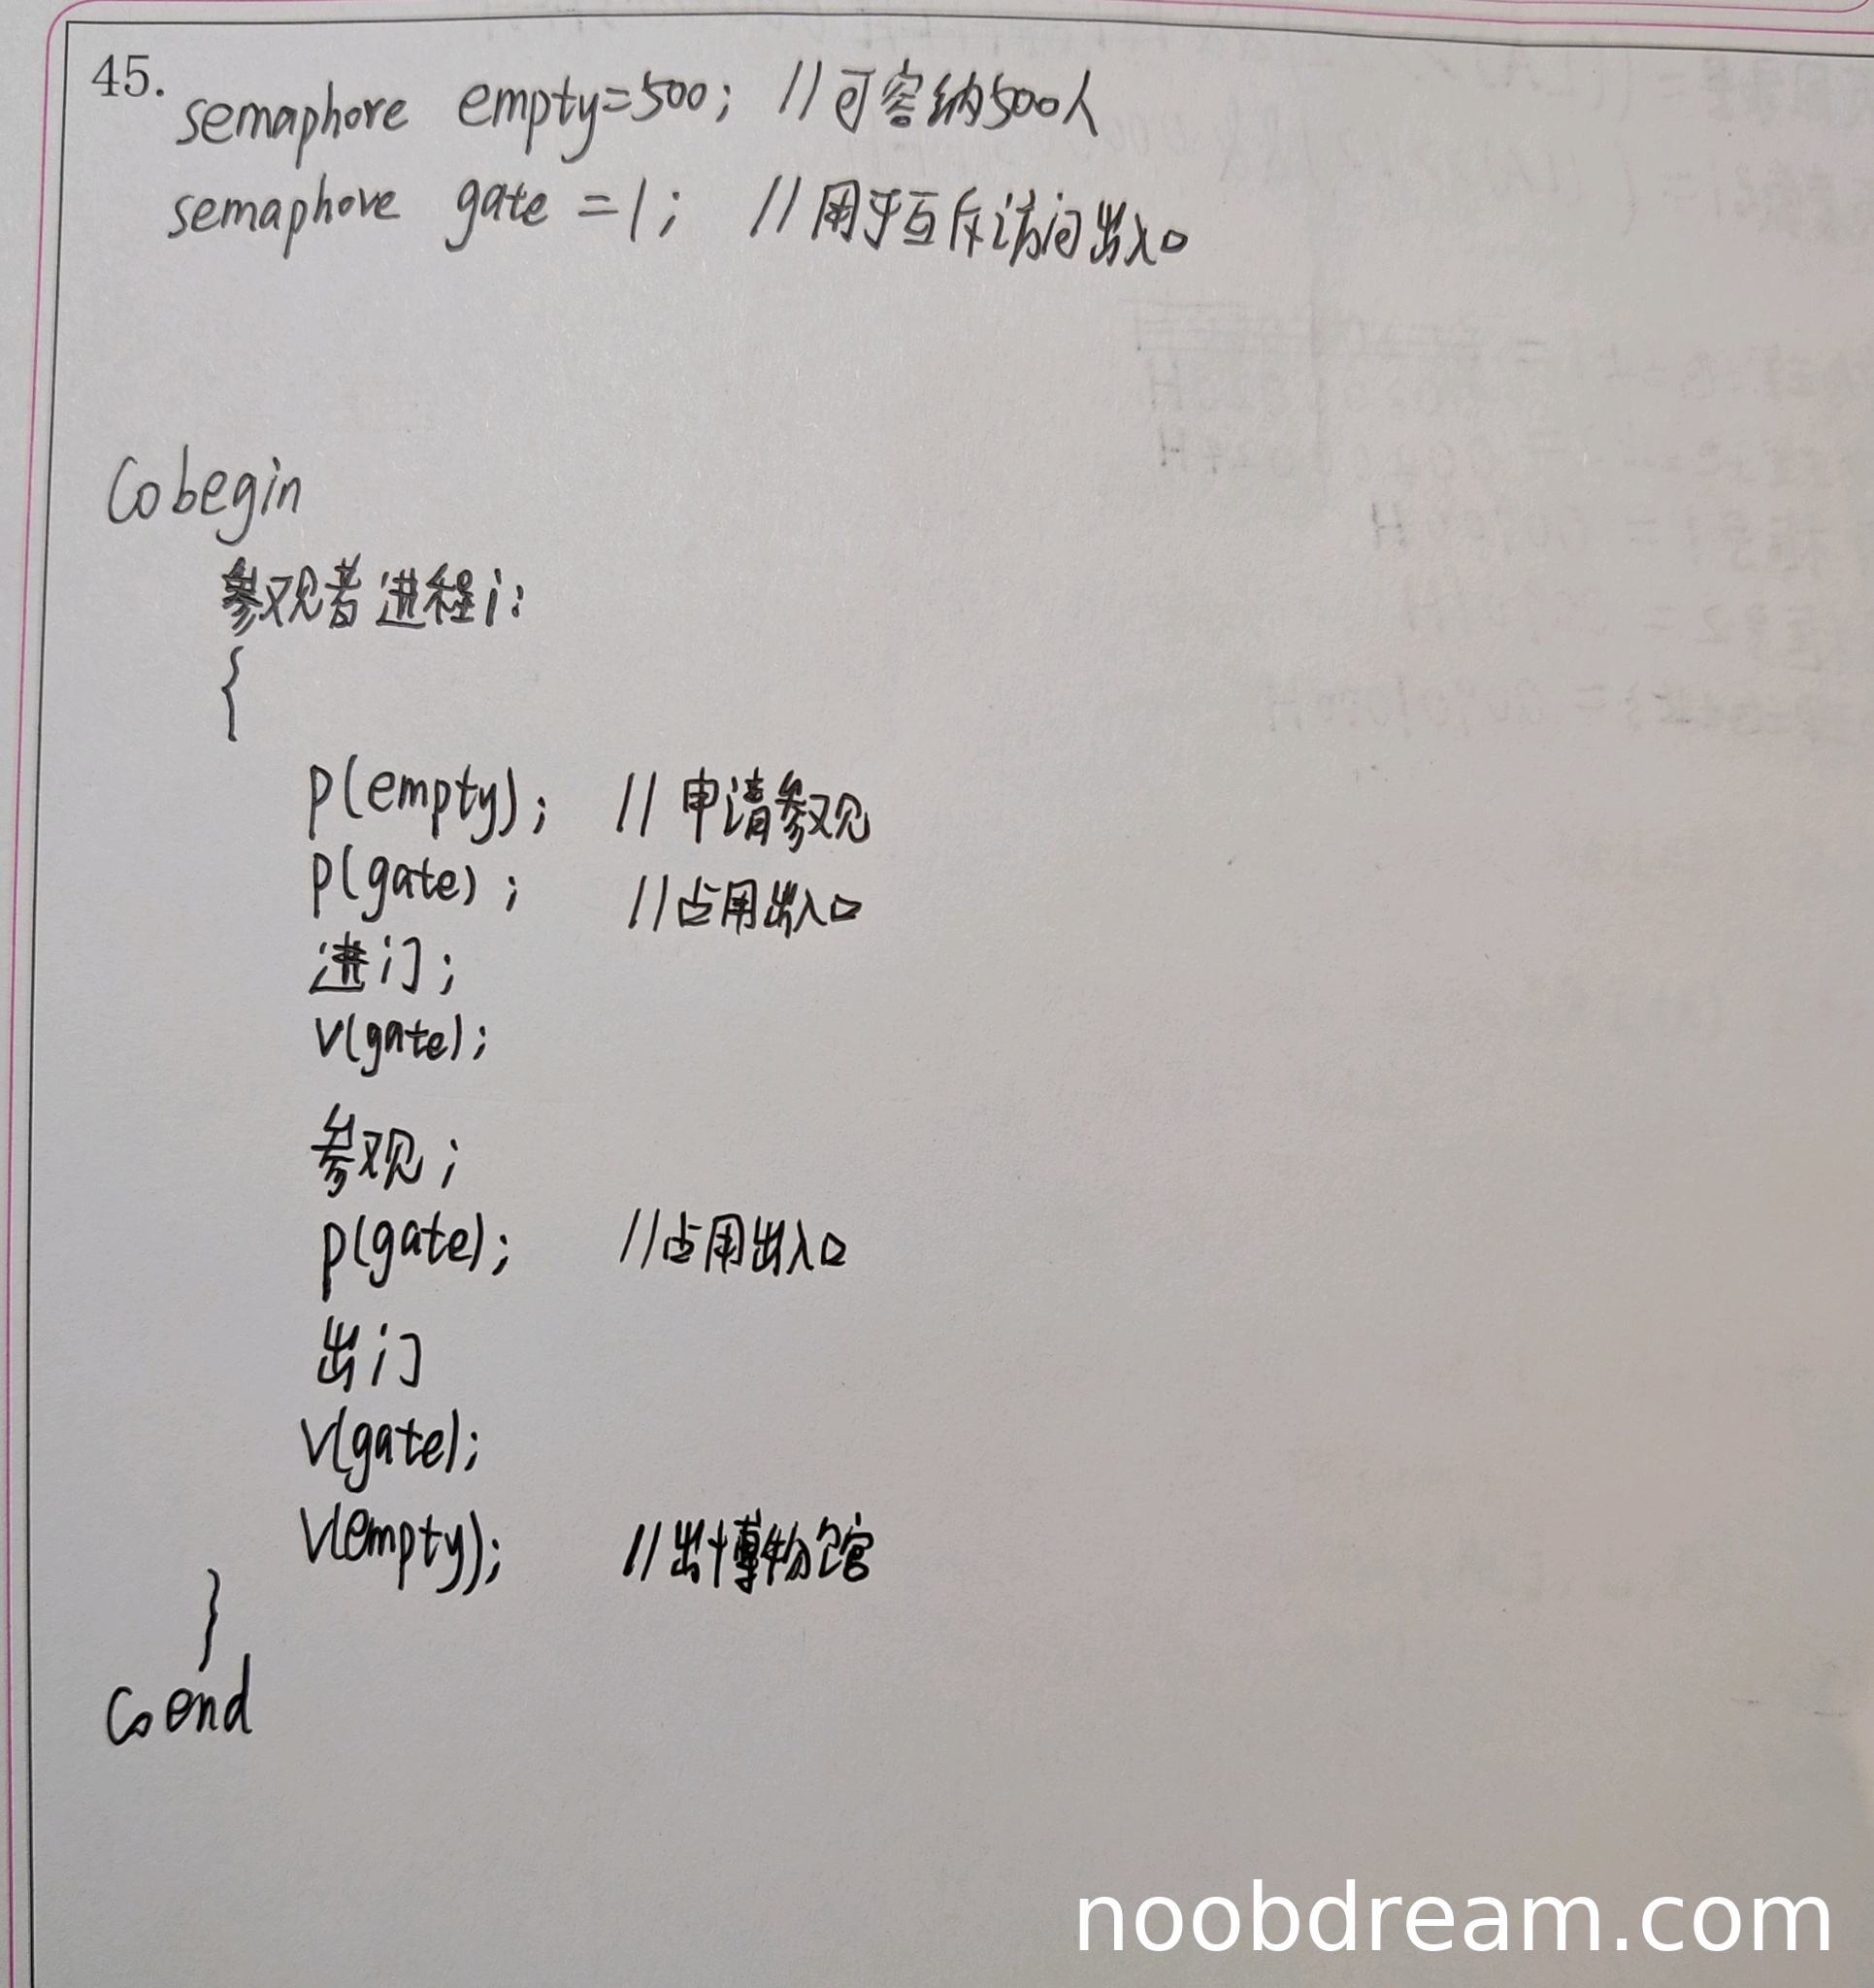 45.
semaphore empty=500; //可容纳500人
semaphore gate =1; //用于互斥访问出入口
Cobegin
参观者进程i:
{
p(empty); //申请参观
p(gate); //占用出入口
进门;
v(gate);
参观;
p(gate); //占用出入口
出门
v(gate);
v(empty); //出博物馆
}
Coend
noobdream.com